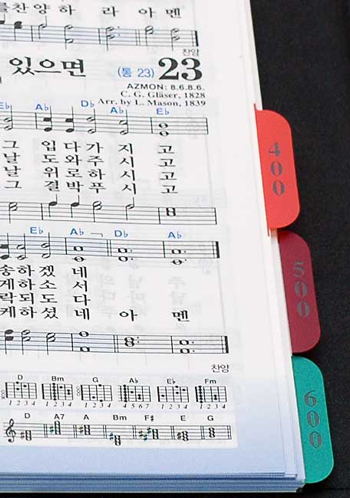 를찬양하 라 아 멘
찬양
있으면 (통 23) 23
AZMON: 8.6.8.6.
C. G. Gläser, 1828
Arr. by L. Mason, 1839
E♭ A♭ D♭ A♭ E♭
그 입다가 지 고
날 도와주 시 고
날 위로하 시 고
그 결박푸 시 고
E♭ A♭ D♭ A♭
송하겠 네
게하소 서
락되도 다
케하셨 네 아 멘
찬양
D Bm G A♭ E♭ Fm
D A7 A Bm F# E G
400
500
600